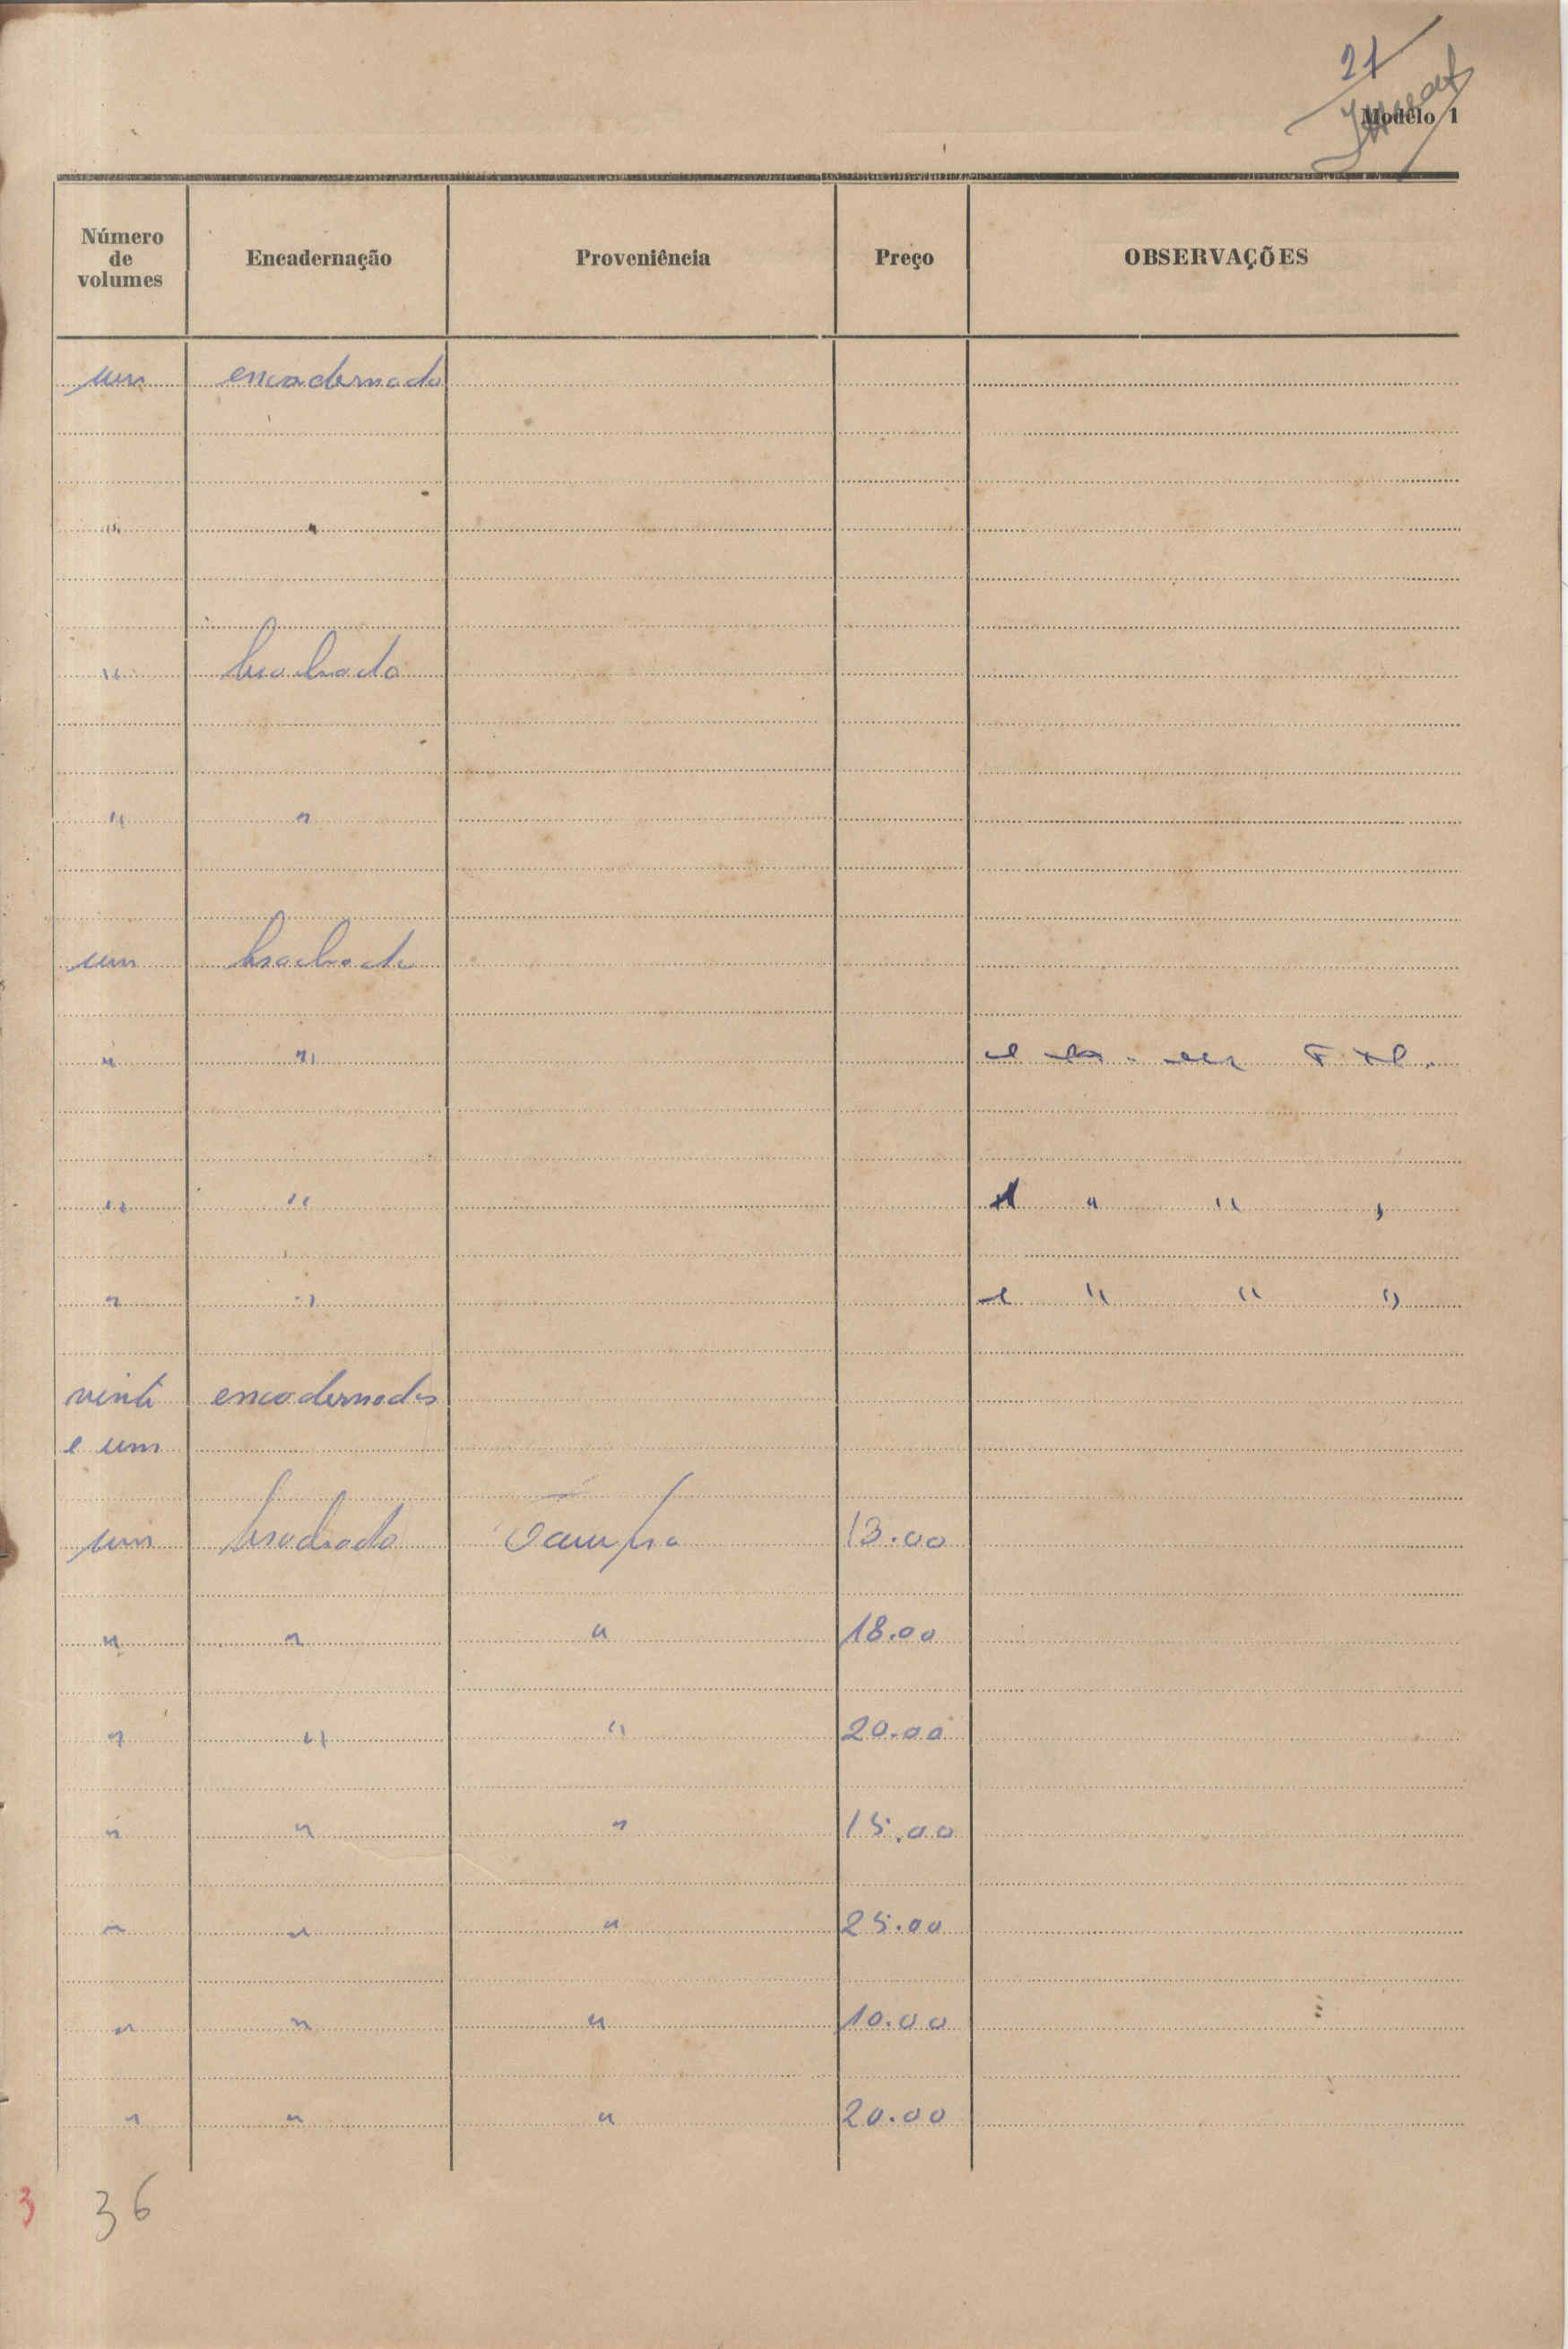 21
Modêlo 1
Número de volumes Encadernação Proveniência Preço OBSERVAÇÕES
um encadernado
" "
" brochado
" "
um brochado
" "
" " " " "
" " " " "
vinte encadernados
e um
um brochado Compra 13.00
" " " 18.00
" " " 20.00
" " " 15.00
" " " 25.00
" " " 10.00
" " " 20.00
3 36